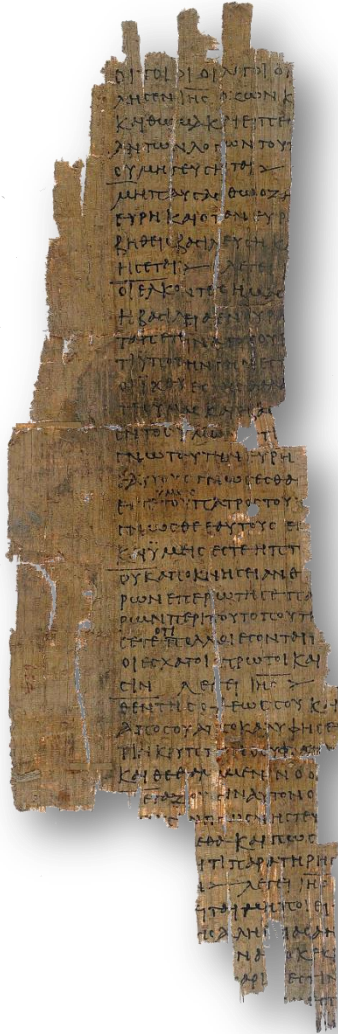 ΟΙΤΟΙΟΙΟΙΛΟΓΟΙΟΙ
ΛΗϹΕΝΙΗϹΟΖΩΝΚ
ΚΑΙΘΩΜΑΚΑΙΕΙΠΕ
ΑΝΤΩΝΛΟΓΩΝΤΟΥΤ
ΟΥΜΗΓΕΥϹΗΤΑΙ >
ΜΗΠΑΥϹΑϹΘΩΟΖΗ
ΕΥΡΗΚΑΙΟΤΑΝΕΥΡ
ΒΗΘΕΙϹΒΑϹΙΛΕΥϹΗΚ
ΗϹΕΤΑΙ > ΛΕΓΕΙ
ΟΙΕΛΚΟΝΤΕϹΗΜΑϹ
ΗΒΑϹΙΛΕΙΑΕΝΟΥΡΑ
ΤΑΠΕΤΕΙΝΑΤΟΥΟΥ
ΤΙΥΠΟΤΗΝΓΗΝΕϹΤ
ΟΙΙΧΘΥΕϹΤΗϹΘΑΛΑ
ΤΕϹΥΜΑϹΚΑΙΗΒΑ
ΕΝΤΟϹΥΜΩΝ ΤΙ
ΓΝΩΤΑΥΤΗΝΕΥΡΗ
ΕΑΥΤΟΥϹΓΝΩϹΕϹΘΑ
ΥΜΕΙϹ
ΕϹΤΕΤΟΥΠΑΤΡΟϹΤΟΥΤ
ΓΝΩϹΘΕΕΑΥΤΟΥϹΕΝ
ΚΑΙΥΜΕΙϹΕϹΤΕΗΠΤΩ
ΟΥΚΑΠΟΚΝΗϹΕΙΑΝΘ
ΡΩΝΕΠΕΡΩΤΗϹΕΠΑ
ΡΩΝΠΕΡΙΤΟΥΤΟΠΟΥΤΗ
ΟΤΙ
ϹΕΤΕΠΟΛΛΟΙΕϹΟΝΤΑΙΠ
ΟΙΕϹΧΑΤΟΙΠΡΩΤΟΙΚΑΙ
ϹΙΝ ΛΕΓΕΙΙΗϹ >
ΘΕΝΤΗϹΟΨΕΩϹϹΟΥΚΑΙ
ΑΠΟϹΟΥΑΠΟΚΑΛΥΦΗϹΕ
ΤΙΝΚΡΥΠΤΟΝΟΟΥΦΑΝ
ΚΑΙΘΕΘΑΜΜΕΝΟΝΟΟ
ΕΤΑΖΟΥϹΙΝΑΥΤΟΝΟ
ΠΩϹΝΗϹΤΕΥ
ΕΘΑΚΑΙΠΩϹ
ΙΤΙΠΑΡΑΤΗΡΗϹ
> ΛΕΓΕΙΙΗϹ
ΕΙΤΑΙΜΗΠΟΙΕΙ
ΗϹΑΛΗΘΕΙΑϹΑΝ
ΝΑ ΟΚΕΚ
ΑΡΙ ΕϹΤΙΝ